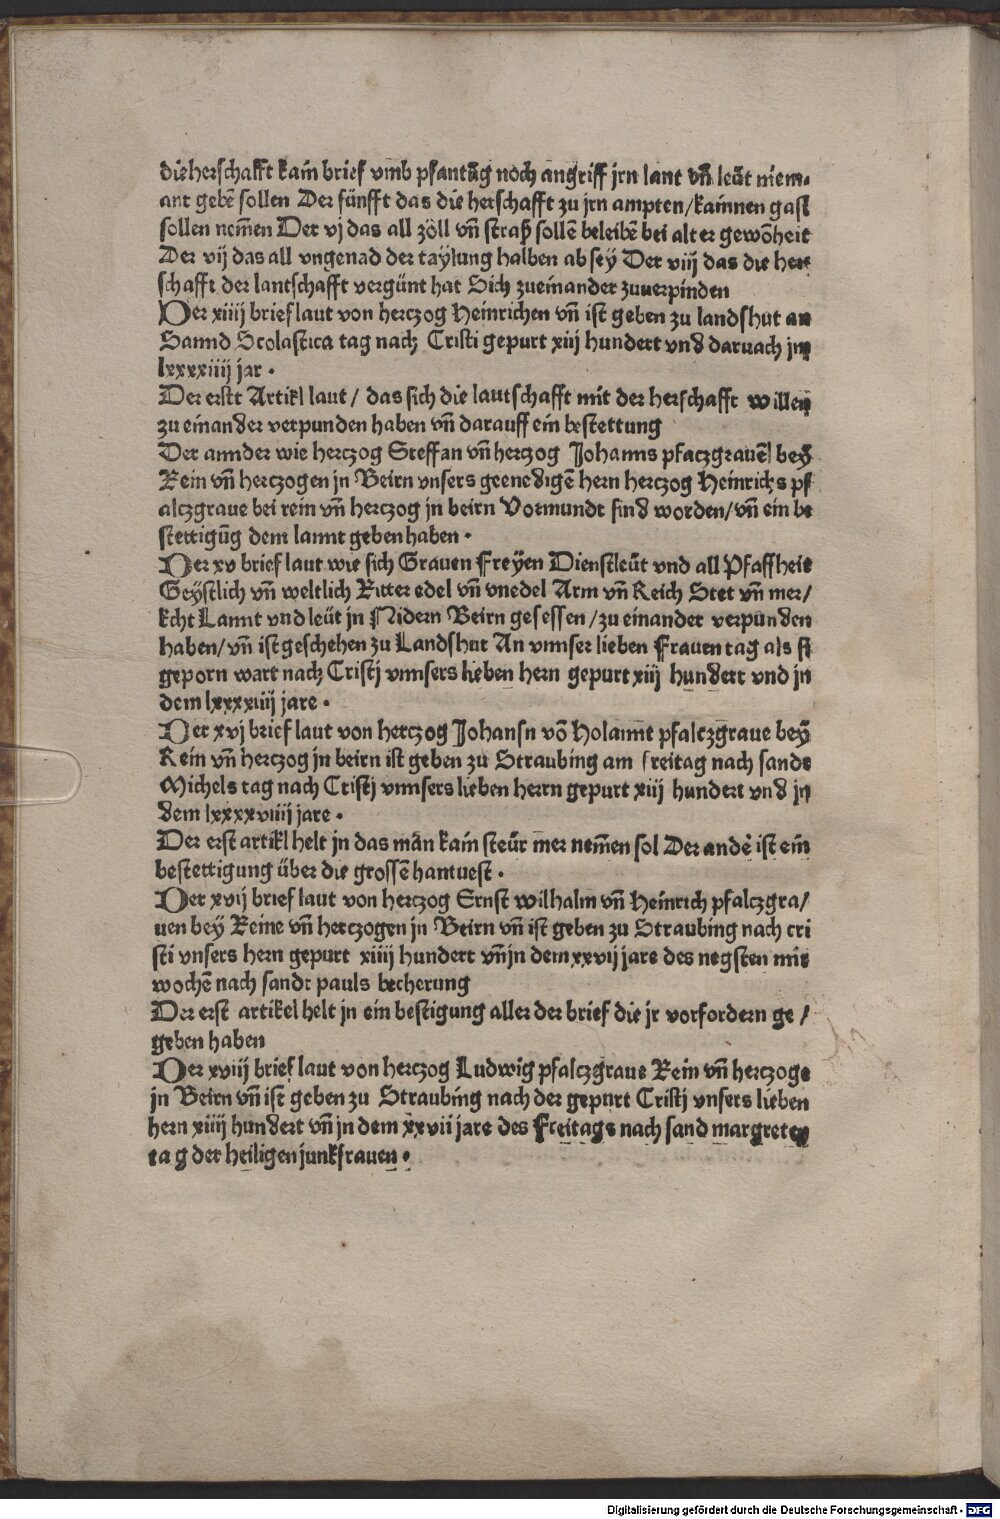 die herschafft kain brief vmb pfantũg noch angriff jrn lant vñ leüt niem-
ant gebē sollen Der fünfft das die herschafft zu jrn ampten/kainnen gast
sollen nem̄en Der vj das all zöll vñ straß sollē beleibē bei alter gewōheit
Der vij das all vngenad der taylung halben ab sey Der viij das die her-
schafft der lantschafft vergünt hat Sich zueinander zuuerpinden
Der xiiij brief laut von hertzog Heinrichen vñ ist geben zu landshut an
Sannd Scolastica tag nach Cristi gepurt xiij hundert vnd darnach jm
lxxxxiiij jar.
Der erstt Artikl laut/ das sich die lantschafft mit der herschafft willen
zu einander verpunden haben vñ darauff ein bestettung
Der annder wie hertzog Steffan vñ hertzog Johanns pfaczgrauē bey
Rein vñ hertzogen jn Beirn vnsers geenedigē hern hertzog Heinrichs pf
alczgraue bei rein vñ hertzog jn beirn Vormundt sind worden/vñ ein be
stettigūg dem lannt geben haben.
Der xv brief laut wie sich Grauen Freyen Dienstleüt vnd all Pfaffheit
Geystlich vñ weltlich Ritter edel vñ vnedel Arm vñ Reich Stet vñ mer/
kcht Lannt vnd leüt jn Nidern Beirn gesessen/zu einander verpunden
haben/vñ ist geschehen zu Landshut An vnnser lieben Frauen tag als si
geporn wart nach Cristj vnnsers lieben hern gepurt xiij hundert vnd jn
dem lxxxxiiij jare.
Der xvj brief laut von hertzog Johansn vō Holannt pfalczgraue bey
Rein vñ hertzog jn beirn ist geben zu Straubing am freitag nach sandt
Michels tag nach Cristj vnnsers lieben herrn gepurt xiij hundert vnd jn
dem lxxxxviiij jare.
Der erst artikl helt jn das man kain steür mer nem̄en sol Der andè ist ein
bestettigung über die grossē hantuest.
Der xvij brief laut von hertzog Ernst wilhalm vñ Heinrich pfalczgra/
uen bey Reine vñ hertzogen jn Beirn vñ ist geben zu Straubing nach cri
sti vnsers hern gepurt xiiij hundert vñ jn dem xxvij jare des negsten mit
wochē nach sandt pauls becherung
Der erst artikel helt jn ein bestigung aller der brief die jr vorfordern ge/
geben haben
Der xviij brief laut von hertzog Ludwig pfalczgraue Rein vñ hertzoge
jn Beirn vñ ist geben zu Straubing nach der gepurt Cristj vnsers lieben
hern xiiij hundert vñ jn dem xxvii jare des Freitags nach sand margreten
tag der heiligen junkfrauen.
Digitalisierung gefördert durch die Deutsche Forschungsgemeinschaft - DFG